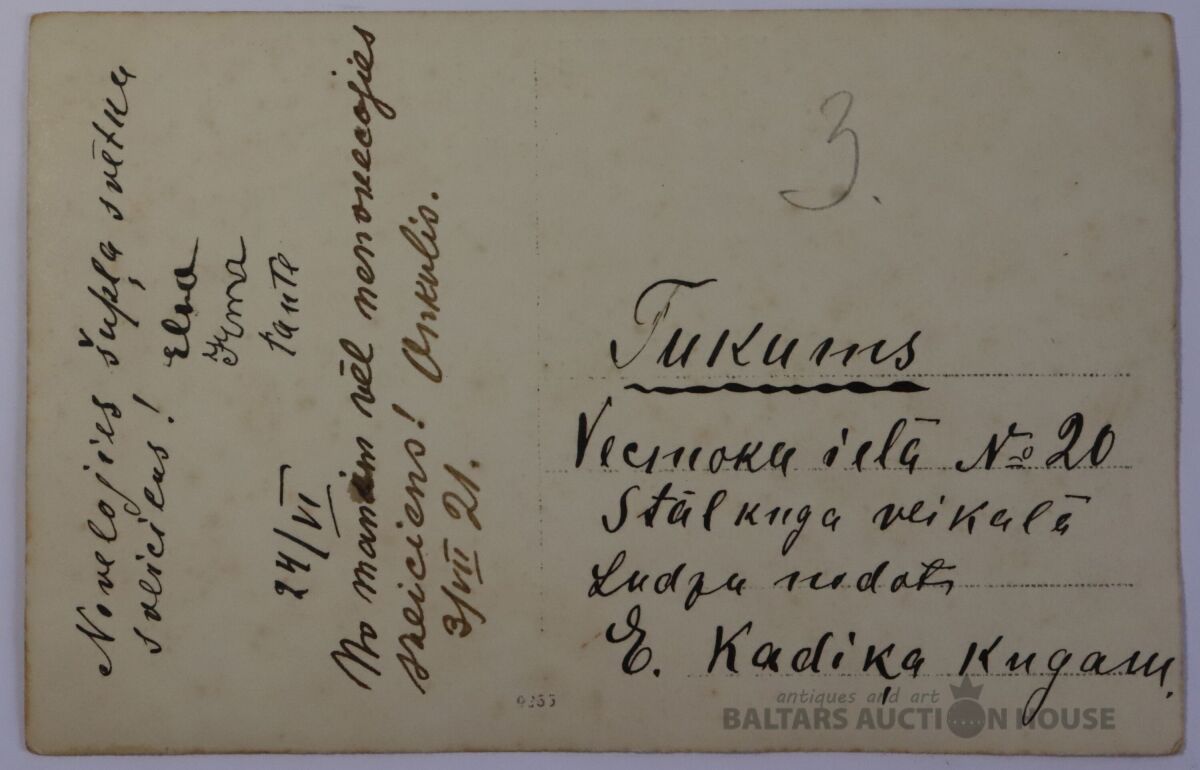 Novelojies šupļa svētku
sveicienus!
Elva
Irma
tante
24/VI
No manim vēl nenokavejies
sveiciens! Onkulis.
3/VII 21.
3.
Tukums
Vecmoku ielā № 20
Stālkunga veikalā
Ludzu nodot
E. Kadiķa Kungam.
0255
antiques and art
BALTARS AUCTION HOUSE